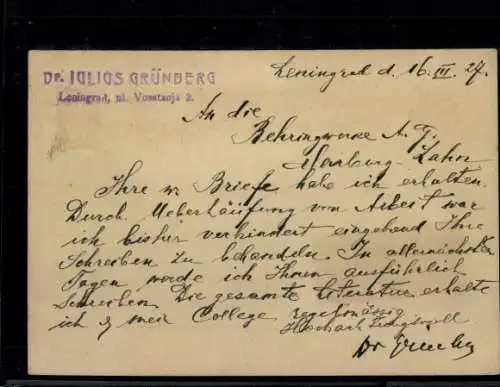 Dr. JULIUS GRÜNBERG
Leningrad, ul. Vosstanja 2.
Leningrad d. 16. III. 27.
An die
Behringwerke A. G.
Marburg-Lahn
Ihre w. Briefe habe ich erhalten.
Durch Ueberhäufung von Arbeit war
ich bisher verhindert eingehend Ihre
Schreiben zu behandeln. In allernächster
Tagen werde ich Ihnen ausführlich
schreiben. Die gesamte Literatur erhalte
ich & mein College regelmässig
Hochachtungsvoll
Dr Grünberg